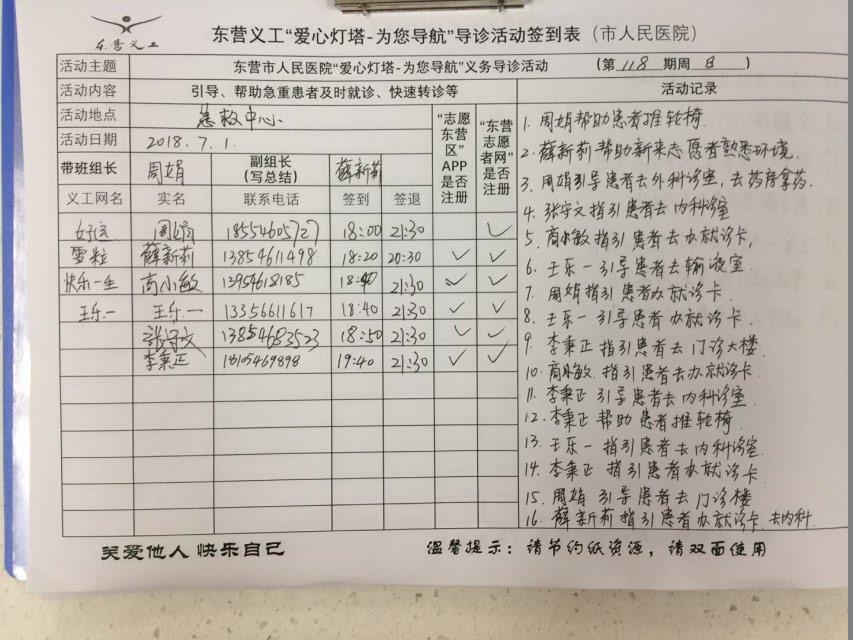 东营义工
东营义工“爱心灯塔-为您导航”导诊活动签到表（市人民医院）
活动主题 东营市人民医院“爱心灯塔-为您导航”义务导诊活动 （第118期周日）
活动内容 引导、帮助急重患者及时就诊、快速转诊等 活动记录
活动地点 急救中心
活动日期 2018.7.1.
带班组长 周娟 副组长（写总结） 薛新莉
“志愿东营区”APP是否注册
“东营志愿者网”是否注册
义工网名 实名 联系电话 签到 签退
好运 周娟 18554605727 18:00 21:30 ✓
雪粒 薛新莉 13854611498 18:20 20:30 ✓ ✓
快乐一生 商小敏 13954618185 18:40 21:30 ✓ ✓
王乐一 王乐一 13356611617 18:40 21:30 ✓ ✓
张守文 13854683523 18:50 21:30 ✓ ✓
李秉正 18105469898 19:40 21:30 ✓ ✓
1. 周娟帮助患者推轮椅.
2. 薛新莉帮助新来志愿者熟悉环境.
3. 周娟引导患者去外科诊室,去药房拿药.
4. 张守文指引患者去内科诊室
5. 商小敏指引患者去办就诊卡,
6. 王乐一引导患者去输液室.
7. 周娟指引患者办就诊卡
8. 王乐一引导患者办就诊卡.
9. 李秉正指引患者去门诊大楼.
10. 商小敏指引患者去办就诊卡
11. 李秉正引导患者去内科诊室
12. 李秉正帮助患者推轮椅.
13. 王乐一指引患者去内科诊室
14. 李秉正指引患者办就诊卡
15. 周娟引导患者去门诊楼
16. 薛新莉指引患者办就诊卡.去内科.
关爱他人 快乐自己
温馨提示：请节约纸资源，请双面使用